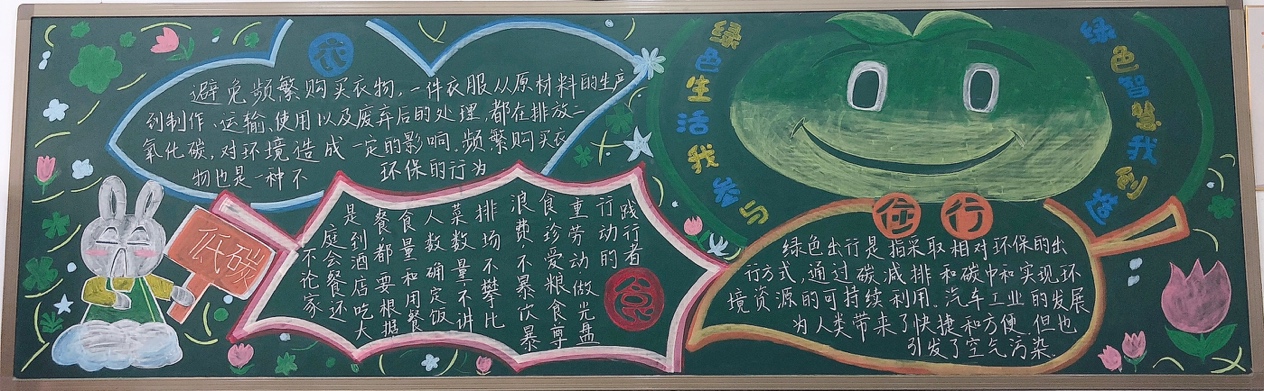 衣
避免频繁购买衣物,一件衣服从原材料的生产
到制作、运输、使用以及废弃后的处理,都在排放二
氧化碳,对环境造成一定的影响.频繁购买衣
物也是一种不 环保的行为
低碳
不论家
庭会餐还
是到酒店吃大
餐都要根据
食量和用餐
人数确定饭
菜数量·不讲
排场不攀比
浪费不暴饮暴
食·珍爱粮食尊
重劳动 做光盘
行动的
践行者
食
绿色生活我参与
绿色智慧我创造
住 行
绿色出行是指采取相对环保的出
行方式,通过碳减排和碳中和实现环
境资源的可持续利用.汽车工业的发展
为人类带来了快捷和方便.但也
引发了空气污染.